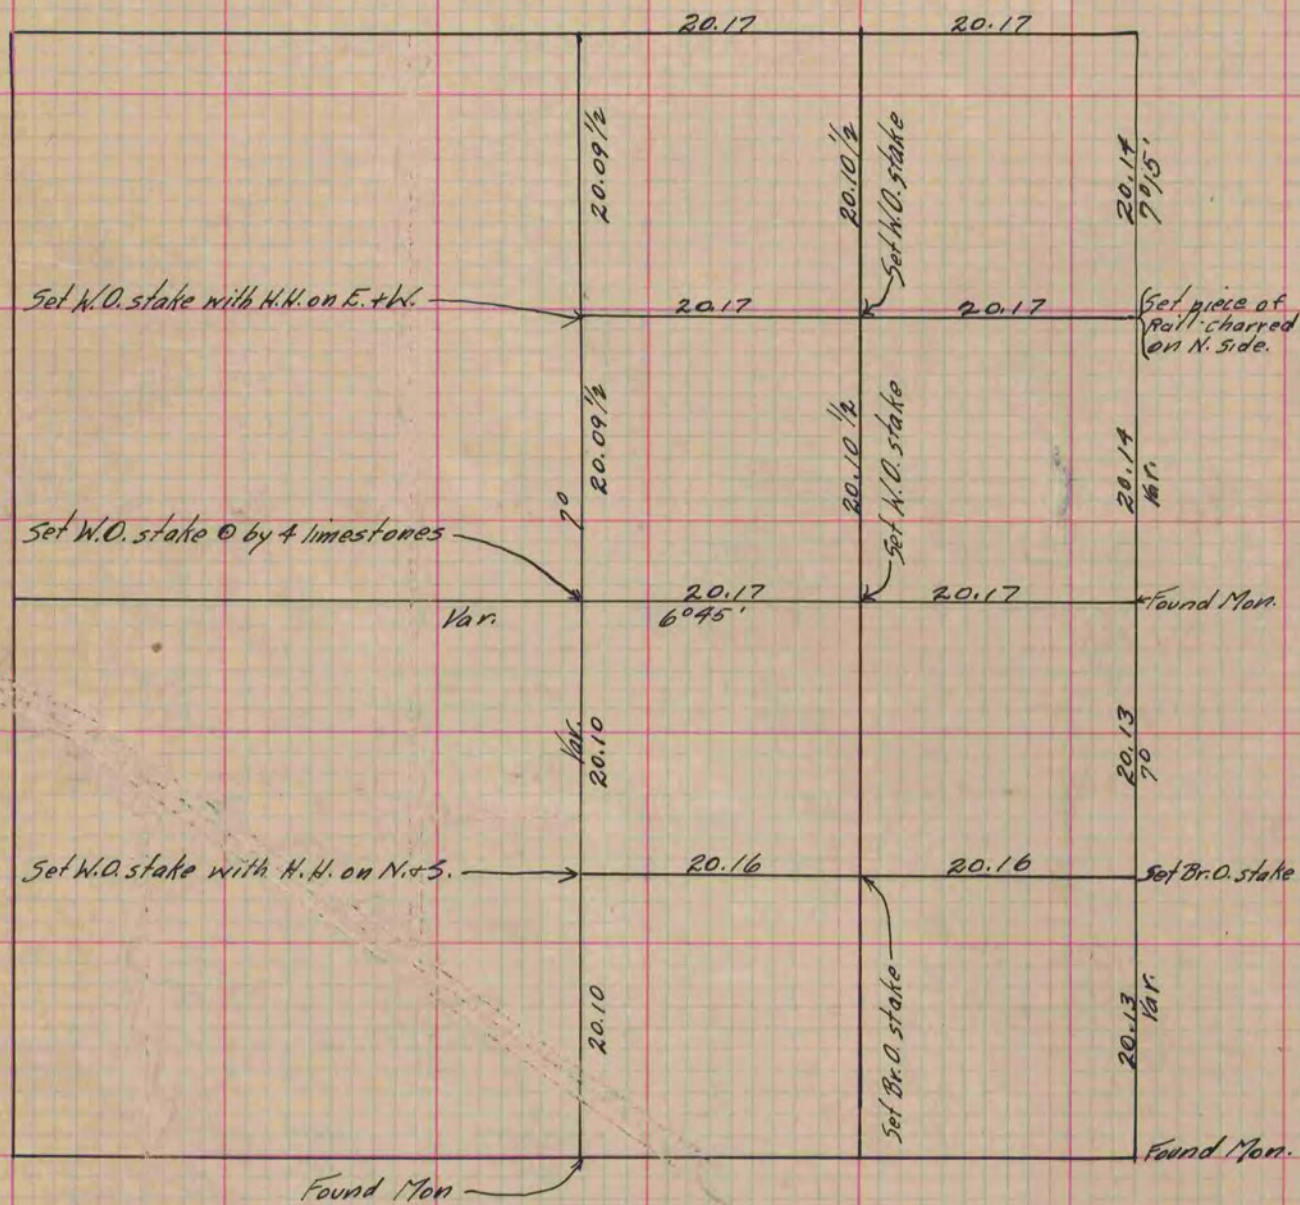 20.17
20.17
20.09 1/2
20.10 1/2
Set W.O. stake
20.14
7°15'
Set W.O. stake with H.H. on E. + W.
20.17
20.17
Set piece of
Rail-charred
on N. side.
20.09 1/2
7°
20.10 1/2
Set W.O. stake
20.14
Var.
Set W.O. stake ⊙ by 4 limestones
20.17
20.17
Found Mon.
Var.
6°45'
Var.
20.10
20.13
7°
Set W.O. stake with H.H. on N. + S.
20.16
20.16
Set Br.O. stake
20.10
Set Br.O. stake
20.13
Var.
Found Mon.
Found Mon